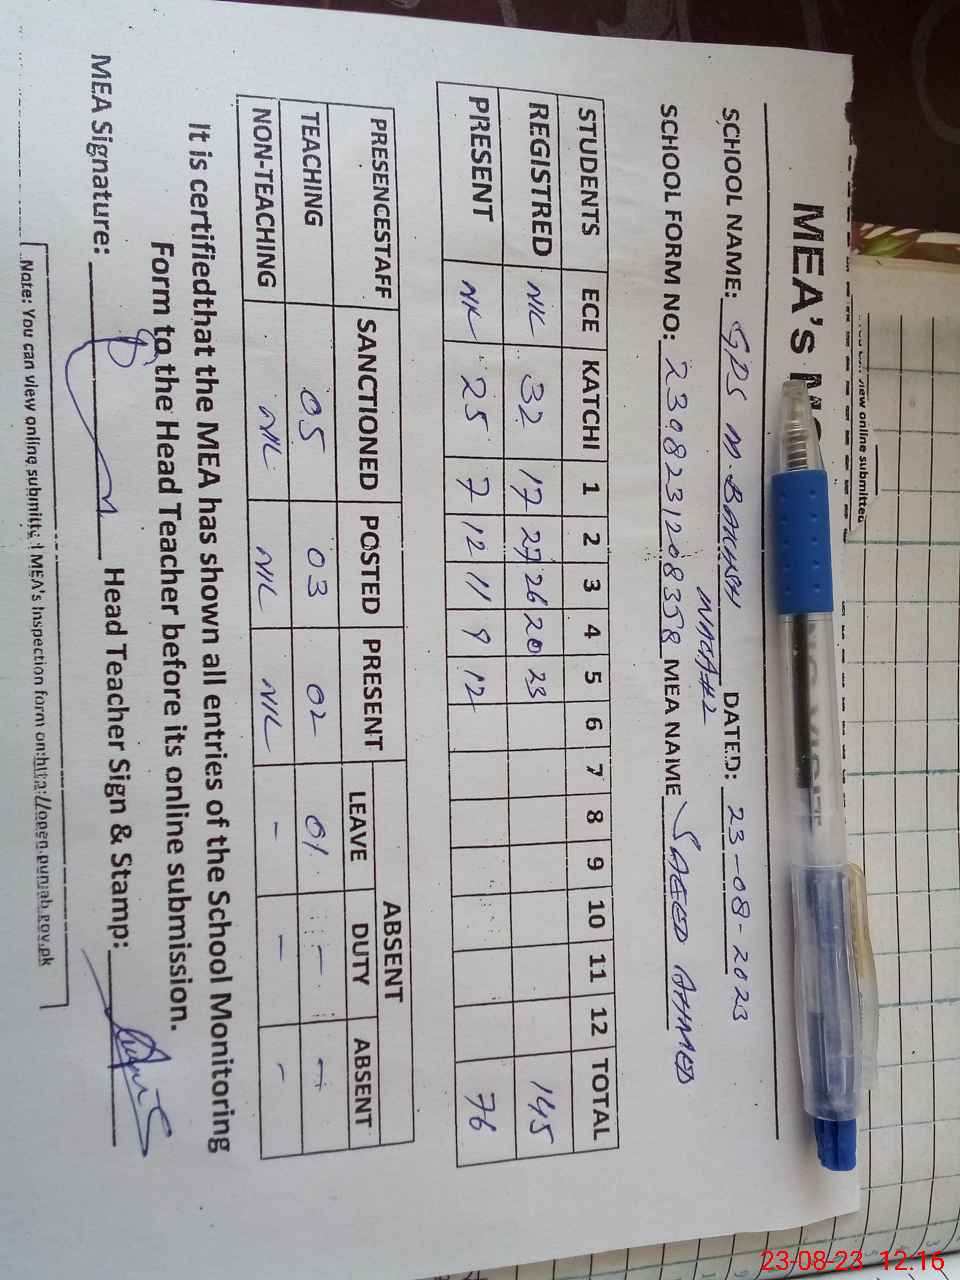 MEA's
SCHOOL NAME: GPS M. BAKHSH DATED: 23-08-2023
SCHOOL FORM NO: 2308231208358 MEA NAME SAEED AHMED
STUDENTS ECE KATCHI 1 2 3 4 5 6 7 8 9 10 11 12 TOTAL
REGISTRED NIL 32 17 27 26 20 23 145
PRESENT NIL 25 7 12 11 9 12 76
ABSENT
PRESENCESTAFF SANCTIONED POSTED PRESENT LEAVE DUTY ABSENT
TEACHING 05 03 02 01 - -
NON-TEACHING NIL NIL NIL - - -
It is certifiedthat the MEA has shown all entries of the School Monitoring
Form to the Head Teacher before its online submission.
MEA Signature: Head Teacher Sign & Stamp:
Note: You can view online submitted MEA's Inspection form on:http://open.punjab.gov.pk
view online submitted
23-08-23 12:16